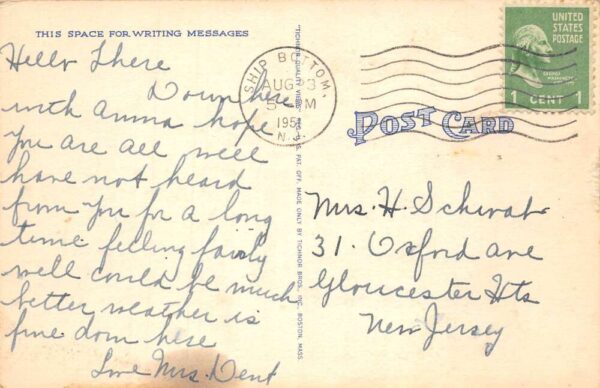 THIS SPACE FOR WRITING MESSAGES
Hello There
Down here
with Anna hope
you are all well
have not heard
from you for a long
time feeling fairly
well could be much
better weather is
fine down here
Love Mrs. Dent
"TICHNOR QUALITY VIEWS" REG. U.S. PAT. OFF. MADE ONLY BY TICHNOR BROS., INC., BOSTON, MASS.
SHIP BOTTOM,
AUG 3
PM
1951
N.J.
UNITED
STATES
POSTAGE
1 CENT 1
POST CARD
Mrs. H. Schwab
31. Oxford Ave
Gloucester Hts
New Jersey